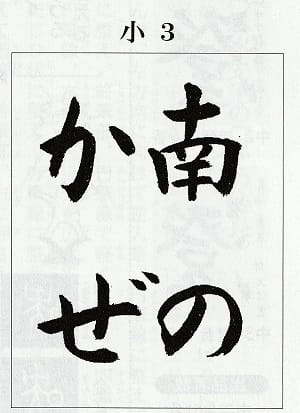 小3
南の
かぜ